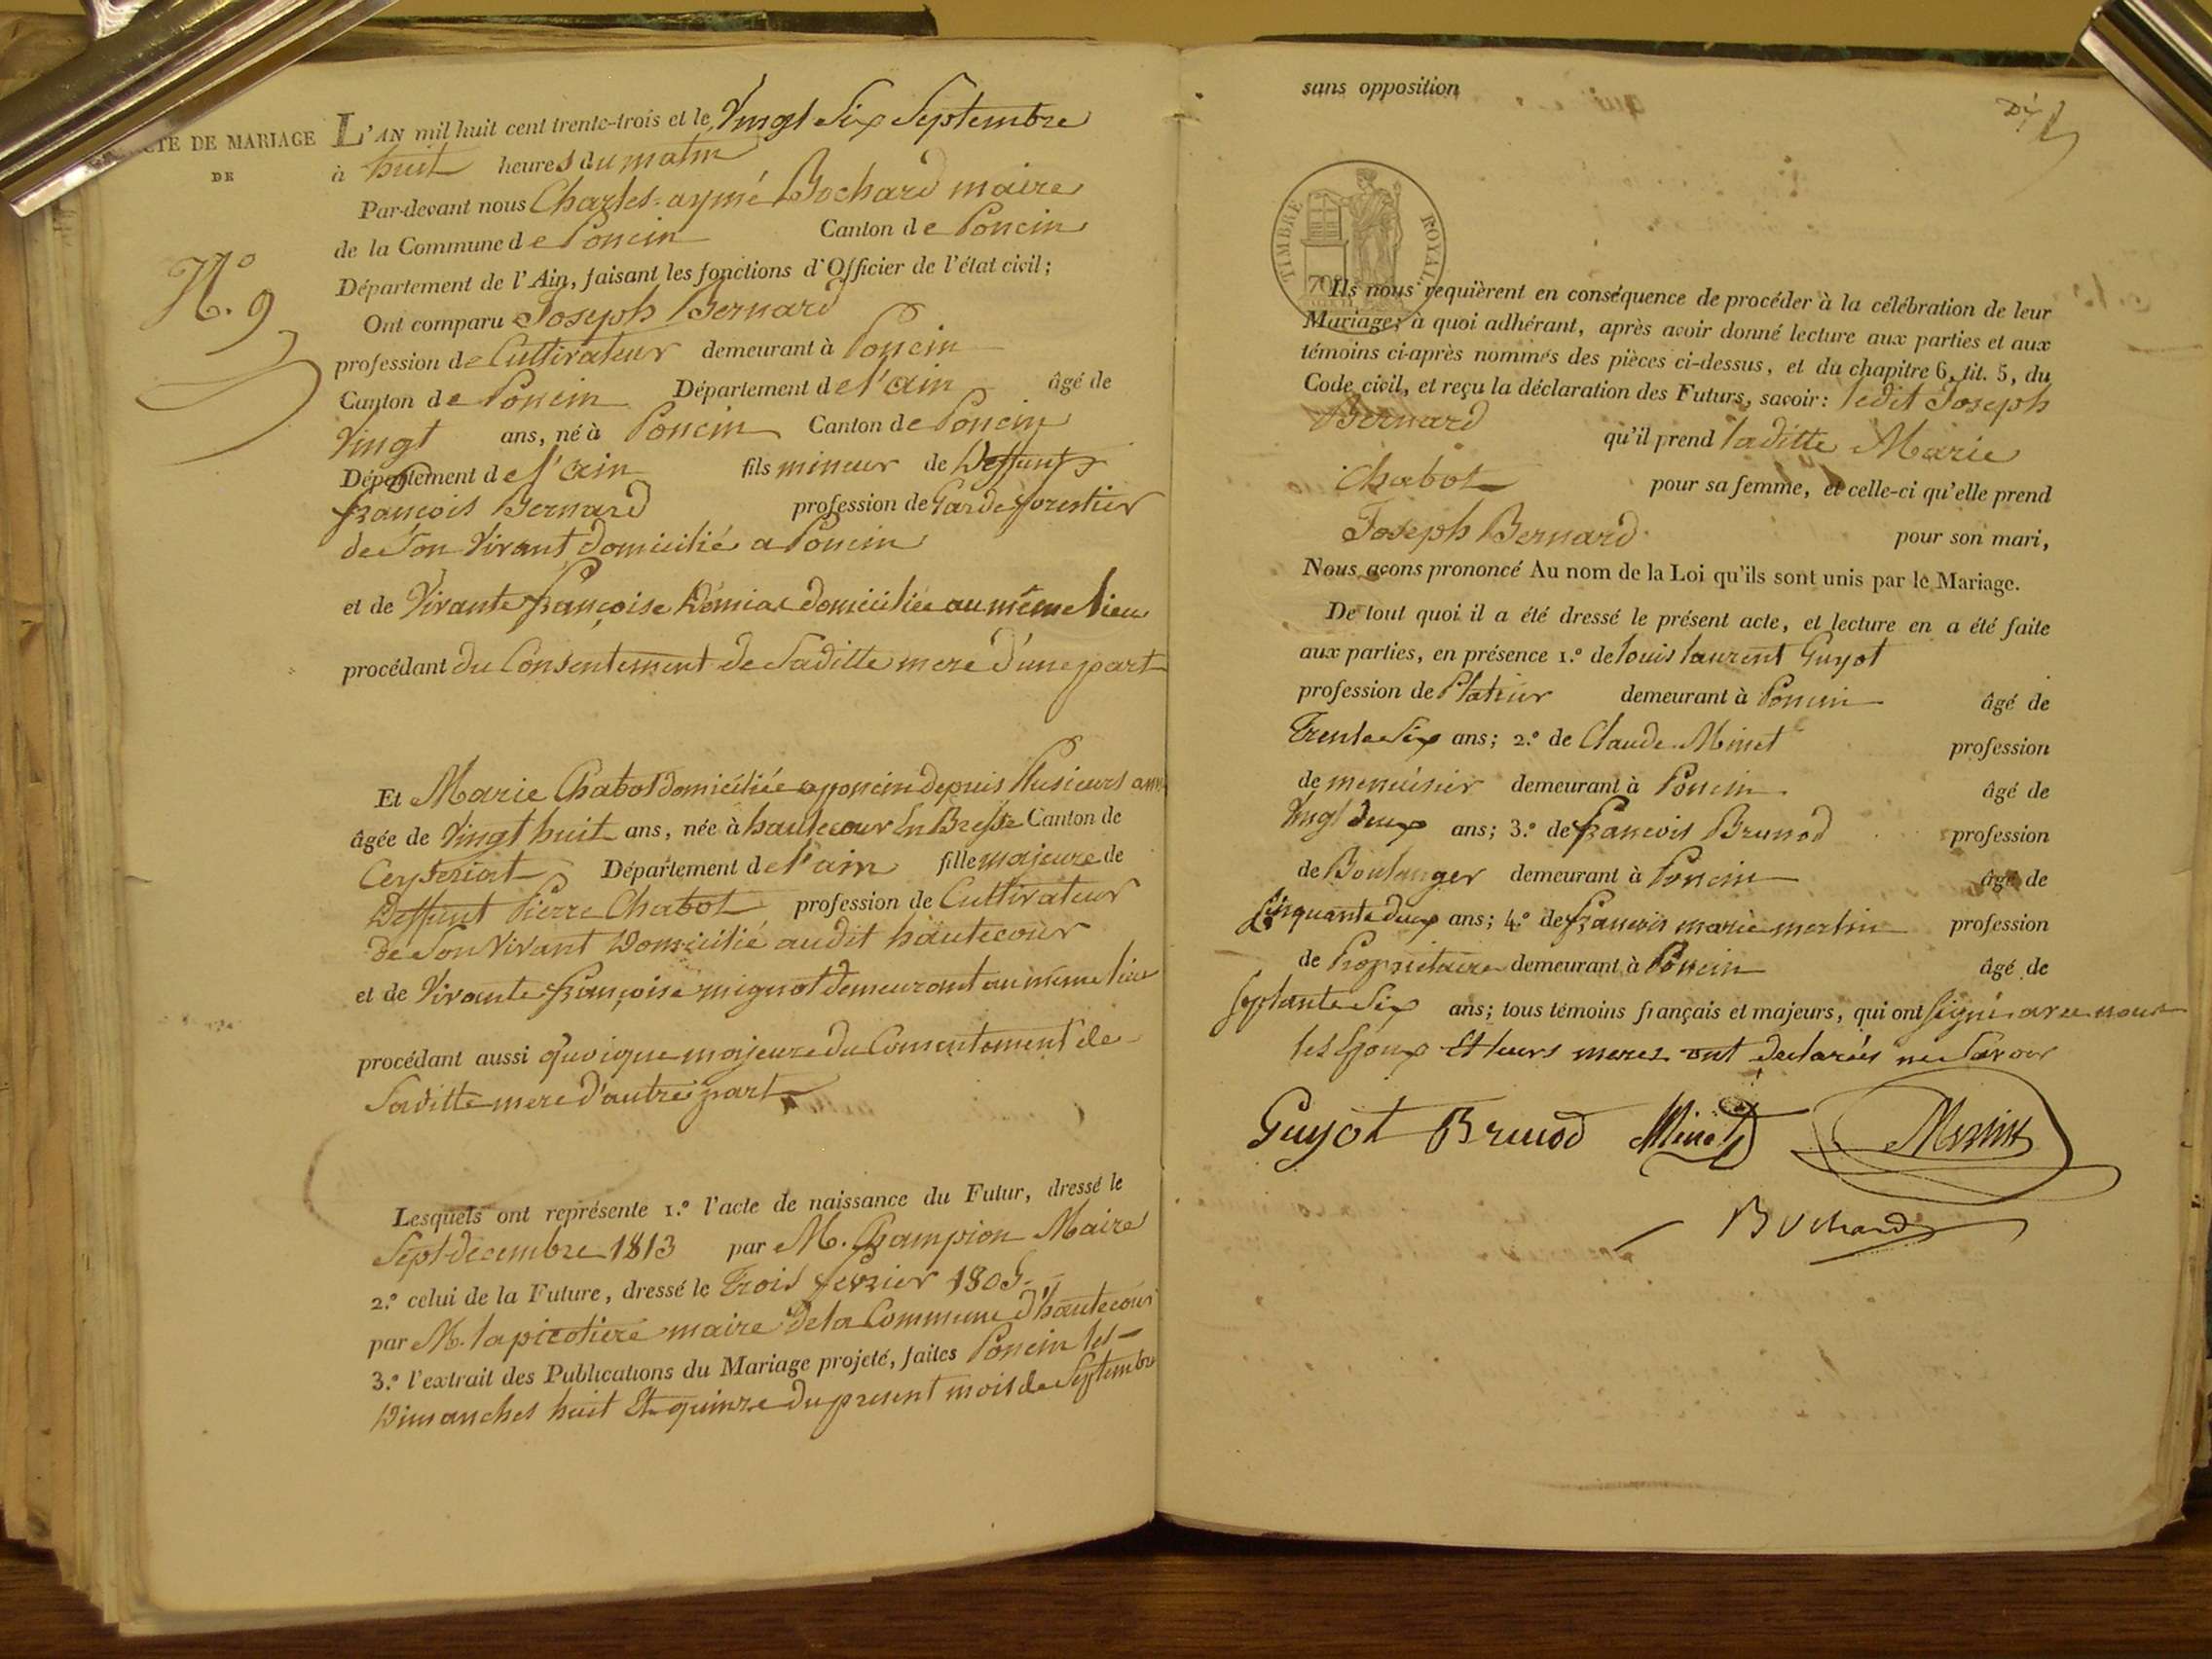 ACTE DE MARIAGE
DE
N.o 9
L'AN mil huit cent trente-trois et le Vingt Six Septembre
à huit heures du matin
Par-devant nous Charles-aymé Bochard maire
de la Commune de Poncin Canton de Poncin
Département de l'Ain, faisant les fonctions d'Officier de l'état civil;
Ont comparu Joseph Bernard
profession de Cultivateur demeurant à Poncin
Canton de Poncin Département de l'ain âgé de
Vingt ans, né à Poncin Canton de Poncin
Département de l'ain fils mineur de Deffunt
françois Bernard profession de Garde forestier
de Son Vivant domicilié a Poncin
et de Vivante françoise domiciliée au même lieu
procédant du Consentement de Saditte mere d'une part
Et Marie Chabot domiciliée a poncin depuis Plusieurs
âgée de Vingt huit ans, née à hautecour En Bresse Canton de
Ceyseriat Département de l'ain fille majeure de
Deffunt Pierre Chabot profession de Cultivateur
de Son Vivant Domicilié audit hautecour
et de Vivante françoise mignot demeurant au même lieu
procédant aussi quoique majeure du Consentement de
Saditte mere d'autre part
Lesquels ont représente 1.o l'acte de naissance du Futur, dressé le
Sept decembre 1813 par M. Champion Maire
2.o celui de la Future, dressé le Trois fevrier 1805
par M. lapicotiere maire de la Commune d'hautecour
3.o l'extrait des Publications du Mariage projeté, faites Poncin les
Dimanches huit Et quinze du present mois de Septembre
sans opposition
TIMBRE ROYAL
70c
Ils nous requièrent en conséquence de procéder à la célébration de leur
Mariage; à quoi adhérant, après avoir donné lecture aux parties et aux
témoins ci-après nommés des pièces ci-dessus, et du chapitre 6, tit. 5, du
Code civil, et reçu la déclaration des Futurs, savoir: ledit Joseph
Bernard qu'il prend laditte Marie
Chabot pour sa femme, et celle-ci qu'elle prend
Joseph Bernard pour son mari,
Nous avons prononcé Au nom de la Loi qu'ils sont unis par le Mariage.
De tout quoi il a été dressé le présent acte, et lecture en a été faite
aux parties, en présence 1.o de louis laurent Guyot
profession de Platrier demeurant à Poncin âgé de
Trente Six ans; 2.o de Claude Minet profession
de menuisier demeurant à Poncin âgé de
Vingt deux ans; 3.o de francois Brunod profession
de Boulanger demeurant à Poncin âgé de
Cinquante deux ans; 4.o de francois marie merlin profession
de Propriétaire demeurant à Poncin âgé de
Septante Six ans; tous témoins français et majeurs, qui ont Signé avec nous
les Epoux Et leurs meres ont declarées ne Savoir
Guyot Brunod Minet Merlin
Bochard